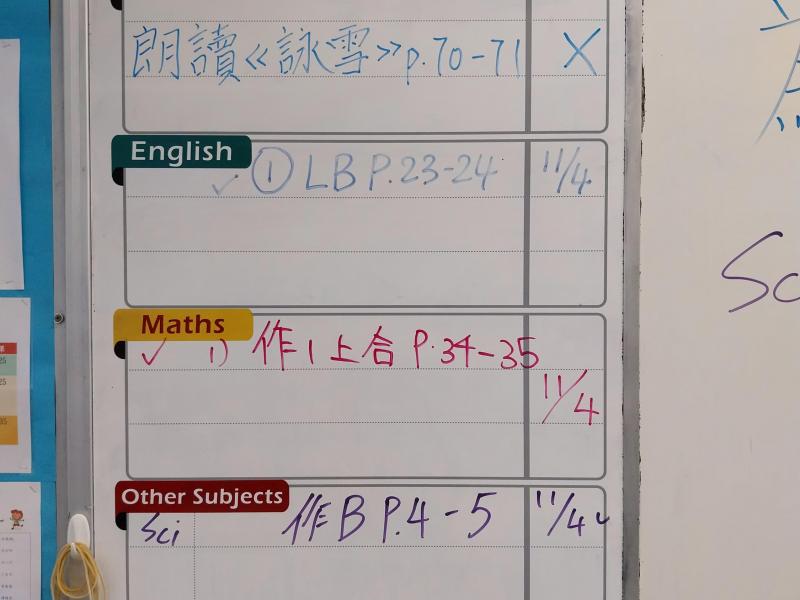 朗讀《詠雪》p.70-71 X
English
✓ ① LB P.23-24 11/4
Maths
✓ 1) 作1上合 P.34-35
11/4
Other Subjects
Sci 作B P.4-5 11/4 ✓
Sc